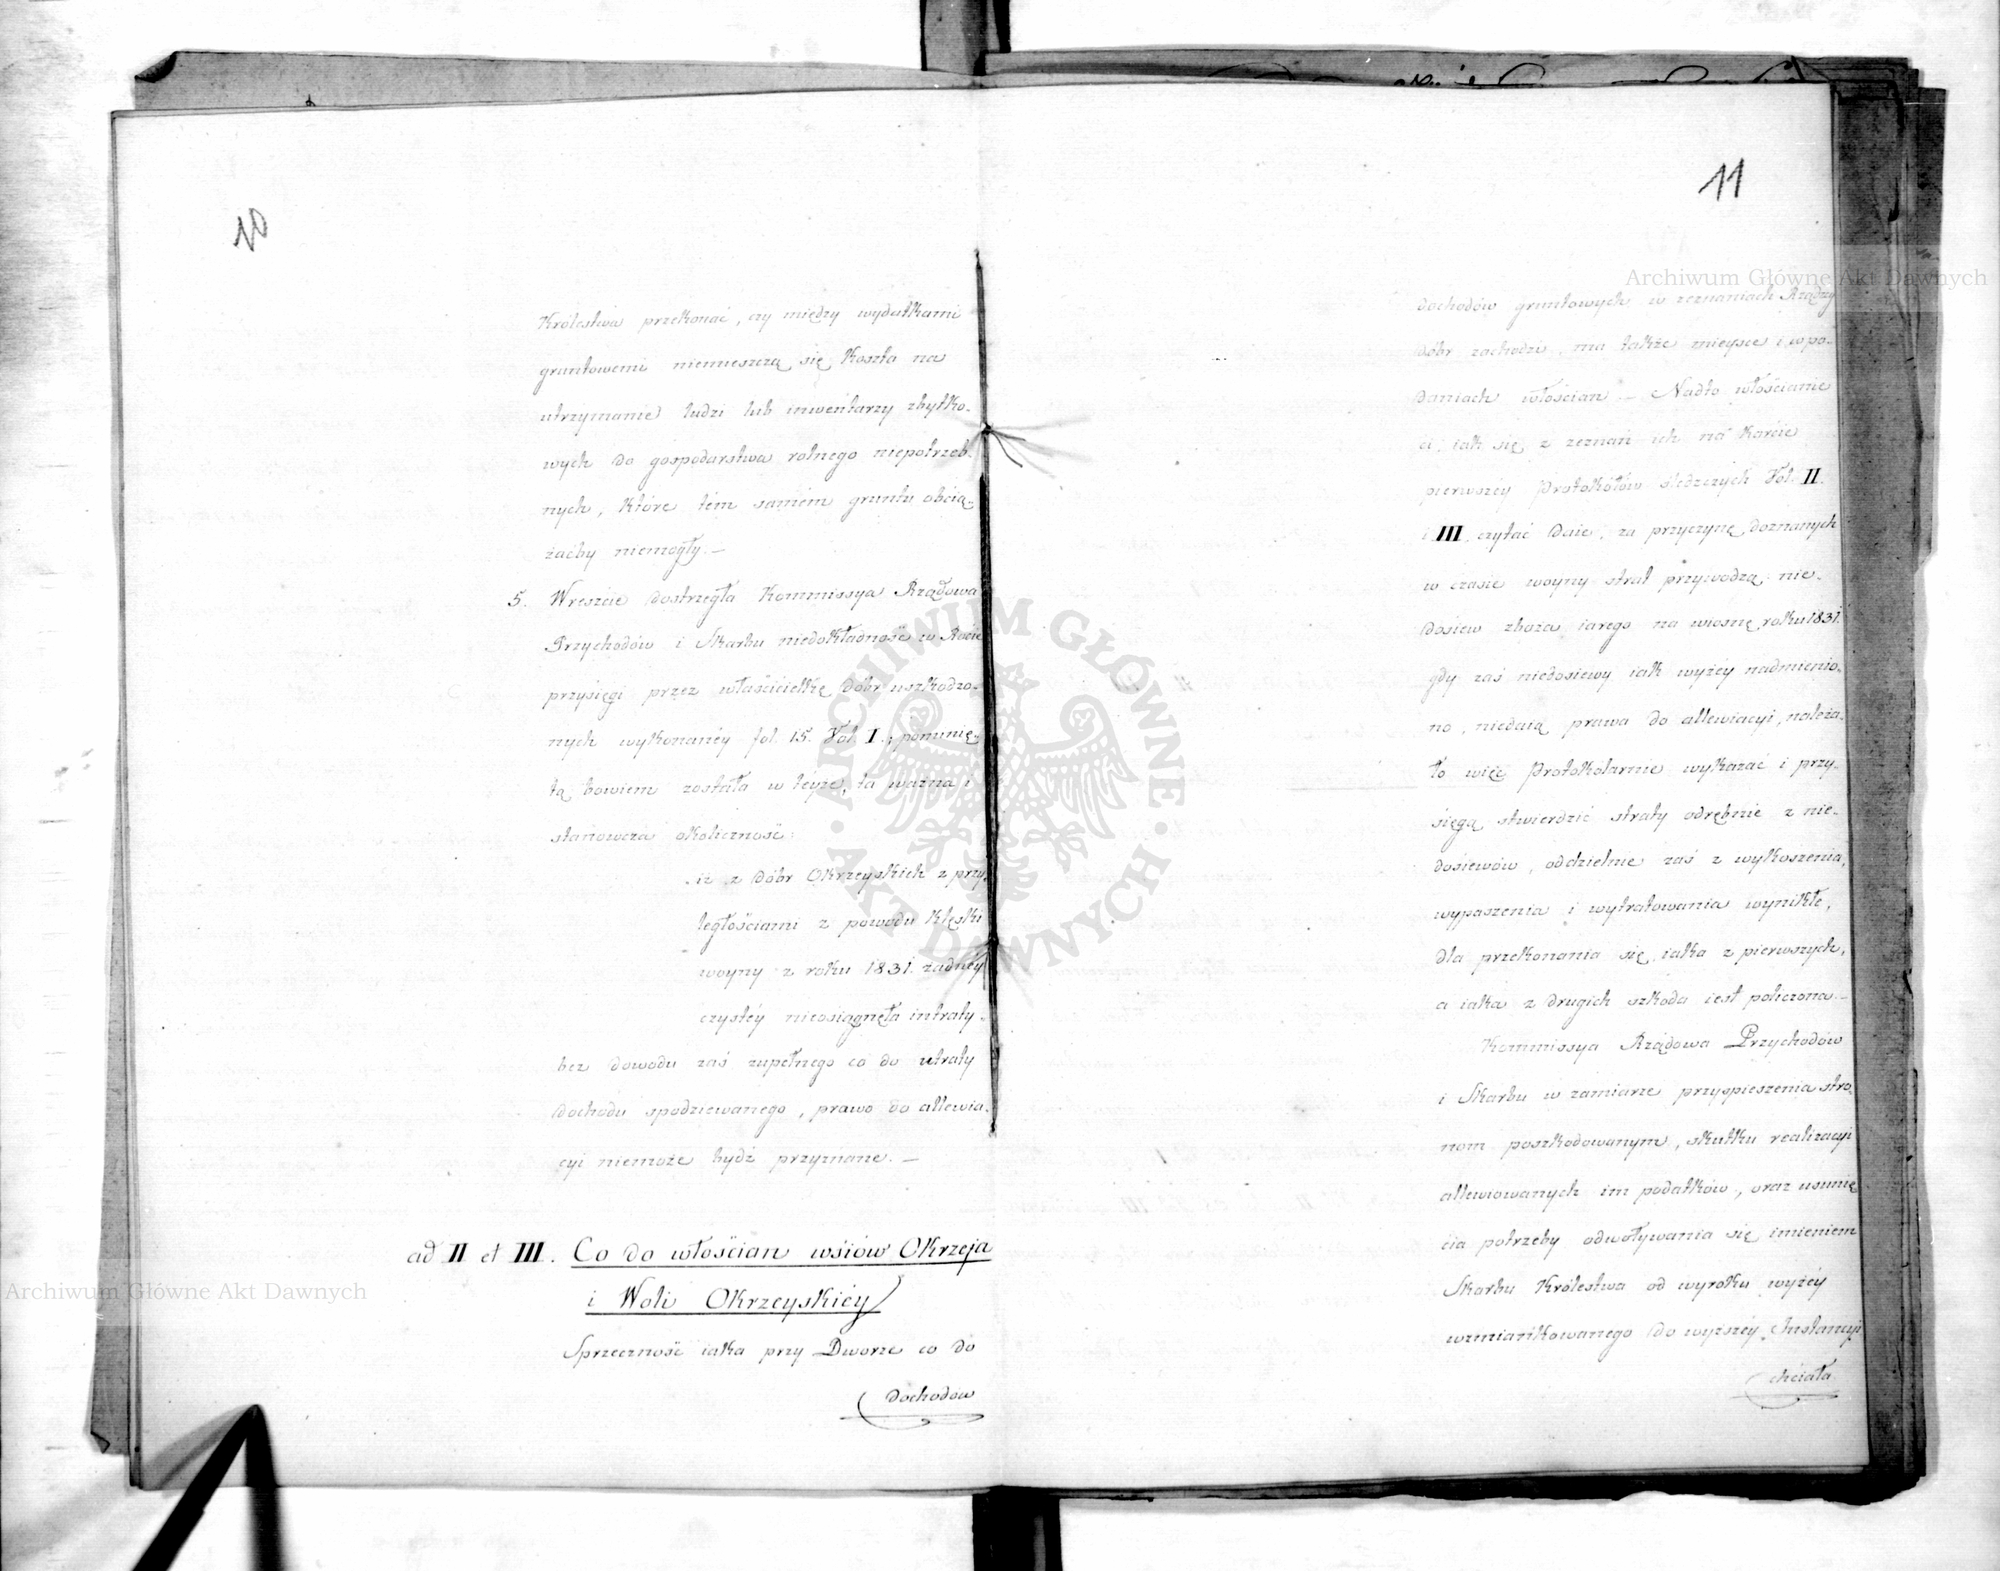 10
Królestwa przekonać, czy między wydatkami
gruntowemi niemieszczą się koszta na
utrzymanie ludzi lub inwentarzy zbytko-
wych do gospodarstwa rolnego niepotrzeb-
nych, które tém samém gruntu obcią-
żaćby niemogły. —
5. Wreszcie dostrzegła Kommissya Rządowa
Przychodów i Skarbu niedokładność w Rocie
przysięgi przez właścicielkę dóbr uszkodzo-
nych wykonanéy fol. 15. Vol. I.; pominię-
tą bowiem została w téyże, ta ważna i
stanowcza okoliczność:
iż z dóbr Okrzeyskich z przy-
ległościami z powodu klęski
woyny z roku 1831. żadnéy
czystéy nieosiągnęła intraty.
bez dowodu zaś zupełnego co do utraty
dochodu spodziewanego, prawo do allewia-
cyi niemoże bydź przyznane. —
ad II et III. Co do włościan wsiów Okrzeja
i Woli Okrzeyskiéy
Sprzeczność iaka przy Dworze co do
dochodow
11
dochodów gruntowych w zeznaniach Rządzy
dóbr zachodzi, ma także mieysce i w po-
daniach włościan — Nadto włościanie
ci, iak się z zeznań ich na karcie
pierwszéy Protokółów śledczych Vol. II.
i III. czytać daie, za przyczynę doznanych
w czasie woyny strat przywodzą nie-
dosiew zboża iarego na wiosnę roku 1831.
gdy zaś niedosiewy iak wyżéy nadmienio-
no, niedaią prawa do allewiacyi, należa-
ło więc Protokolarnie wykazać i przy-
sięgą stwierdzić straty odrębnie z nie-
dosiewów, oddzielnie zaś z wykoszenia,
wypaszenia i wytratowania wynikłe,
dla przekonania się iaka z pierwszych,
a iaka z drugich szkoda iest policzona. —
Kommissya Rządowa Przychodów
i Skarbu w zamiarze przyspieszenia stro-
nom poszkodowanym, skutku realizacyi
allewiowanych im podatków, oraz usunię-
cia potrzeby odwoływania się imieniem
Skarbu Królestwa od wyroku wyżéy
wzmiankowanego do wyższéy Instancyi
chciała
Archiwum Główne Akt Dawnych
Archiwum Główne Akt Dawnych
ARCHIWUM GŁÓWNE · AKT DAWNYCH ·